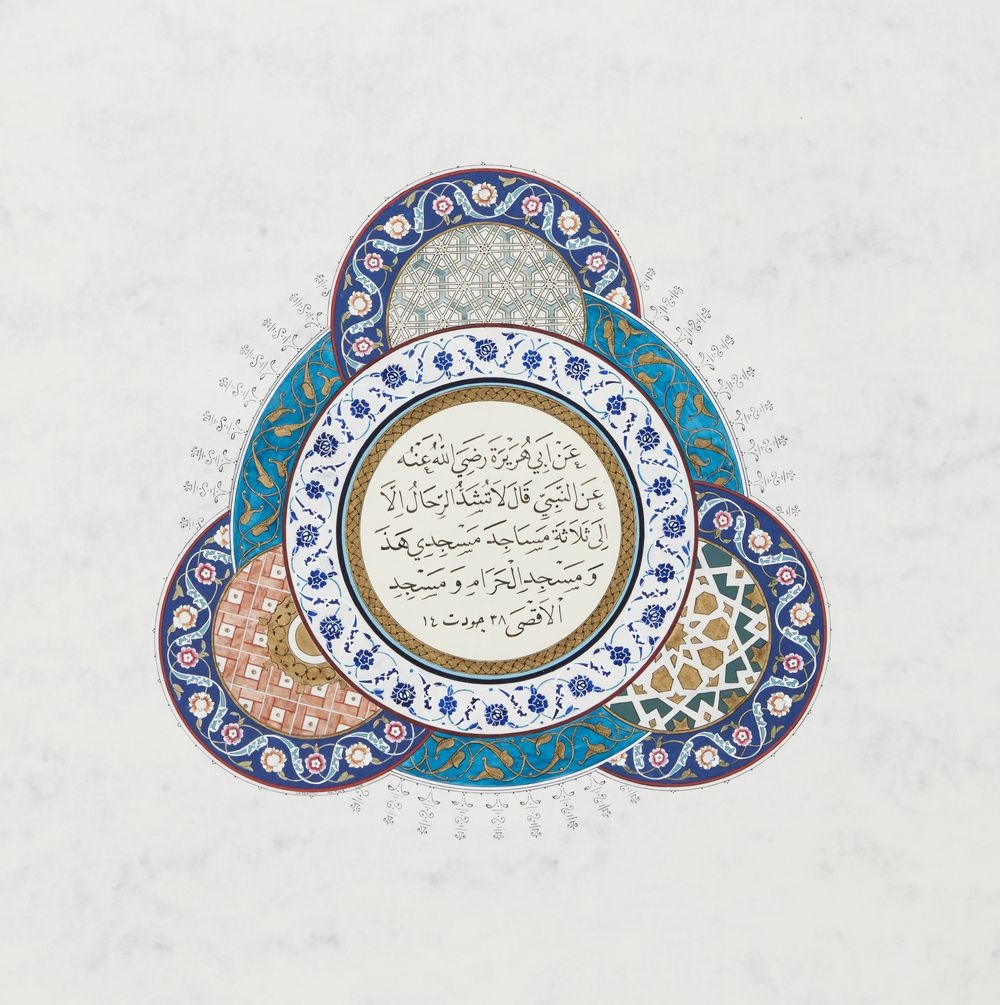 عَنْ اَبِي هُرَيْرَةَ رَضِيَ اللّٰهُ عَنْهُ
عَنِ النَّبِيِّ قَالَ لَا تُشَدُّ الرِّحَالُ اِلَّا
اِلَى ثَلَاثَةِ مَسَاجِدَ مَسْجِدِي هَذَ
وَ مَسْجِدِ الْحَرَامِ وَ مَسْجِدِ
الْاَقْصَى ٣٨ جودت ١٤